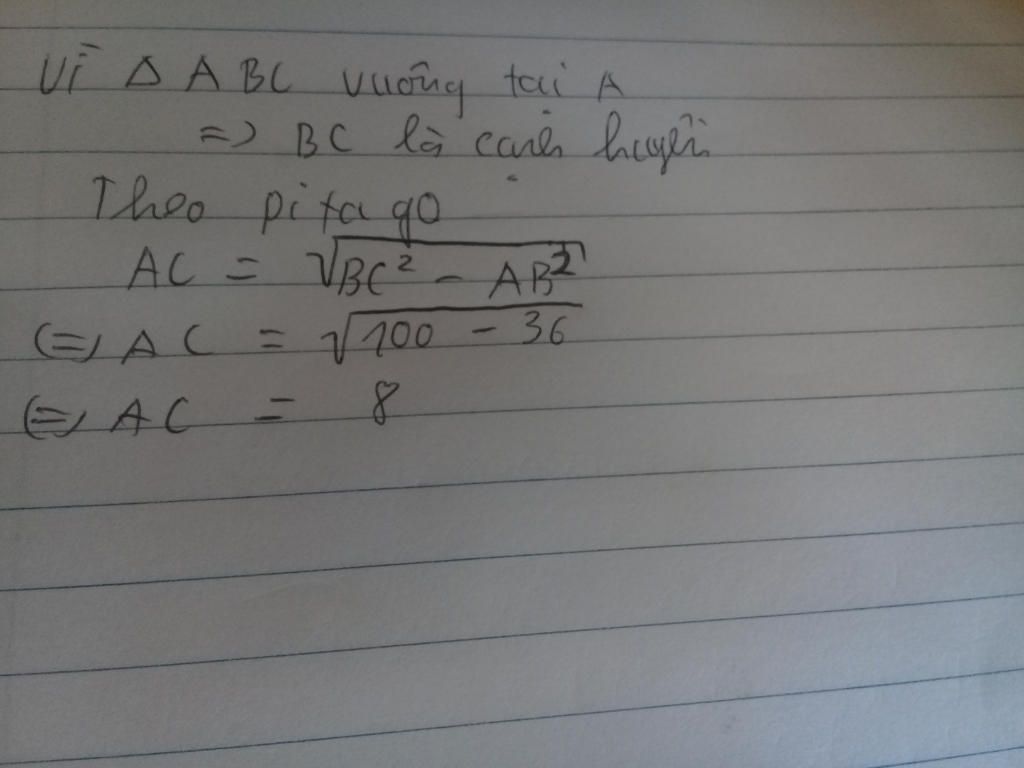 Vì Δ ABC vuông tại A
=> BC là cạnh huyền
Theo pitago
AC = √BC² - AB²
<=> AC = √100 - 36
<=> AC = 8